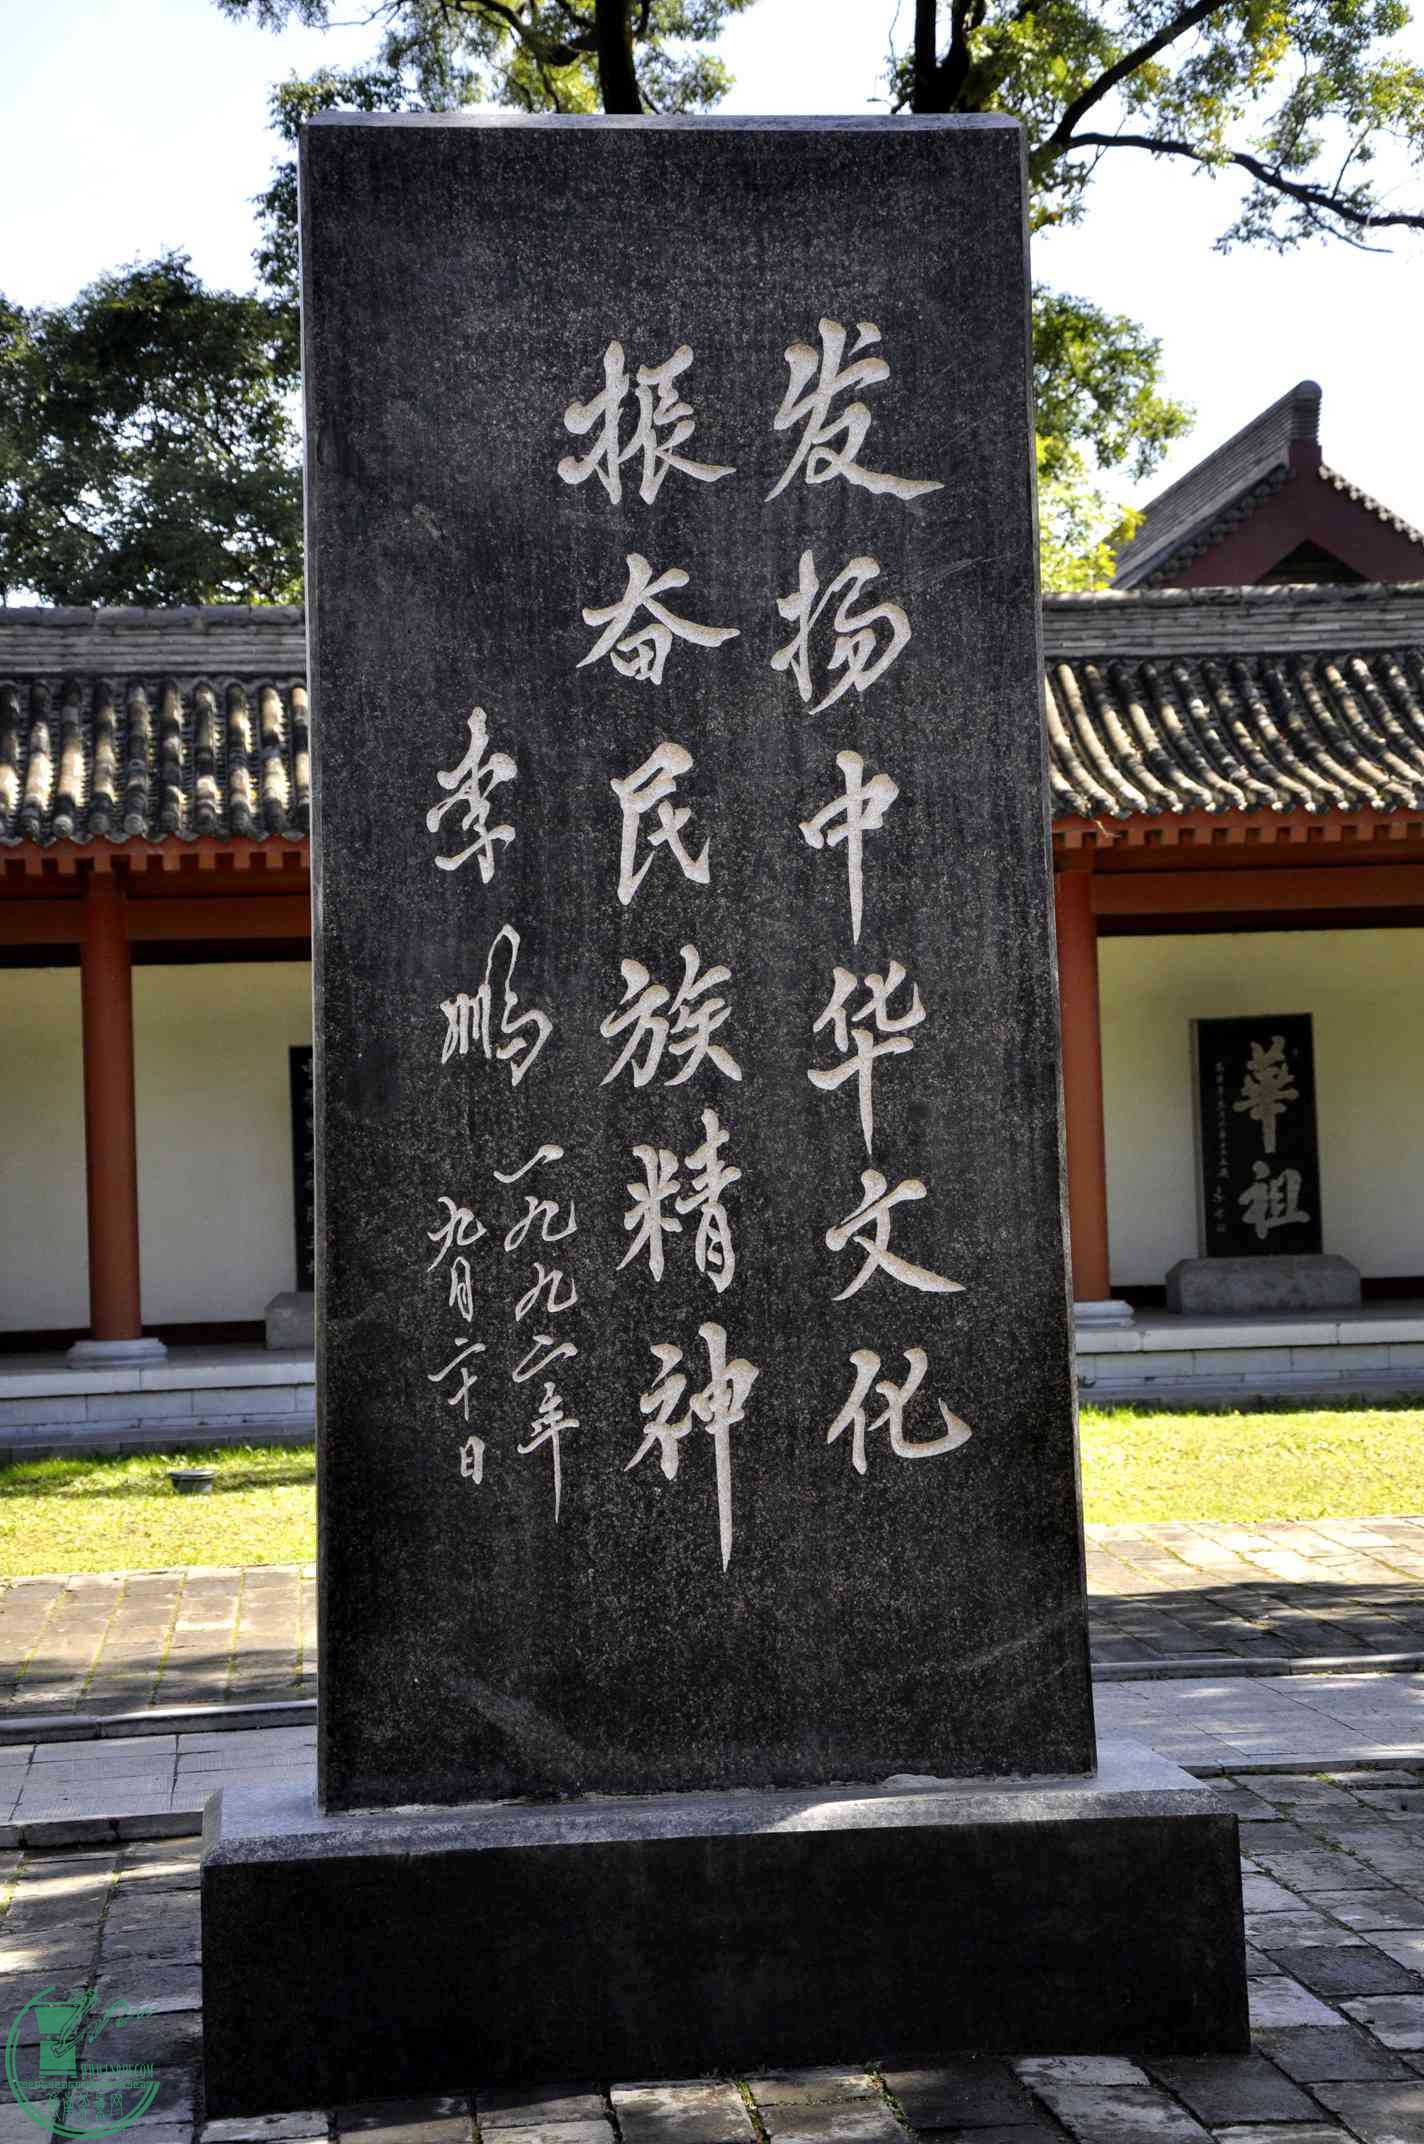 发扬中华文化
振奋民族精神
李鹏
一九九二年
九月二十日
華祖